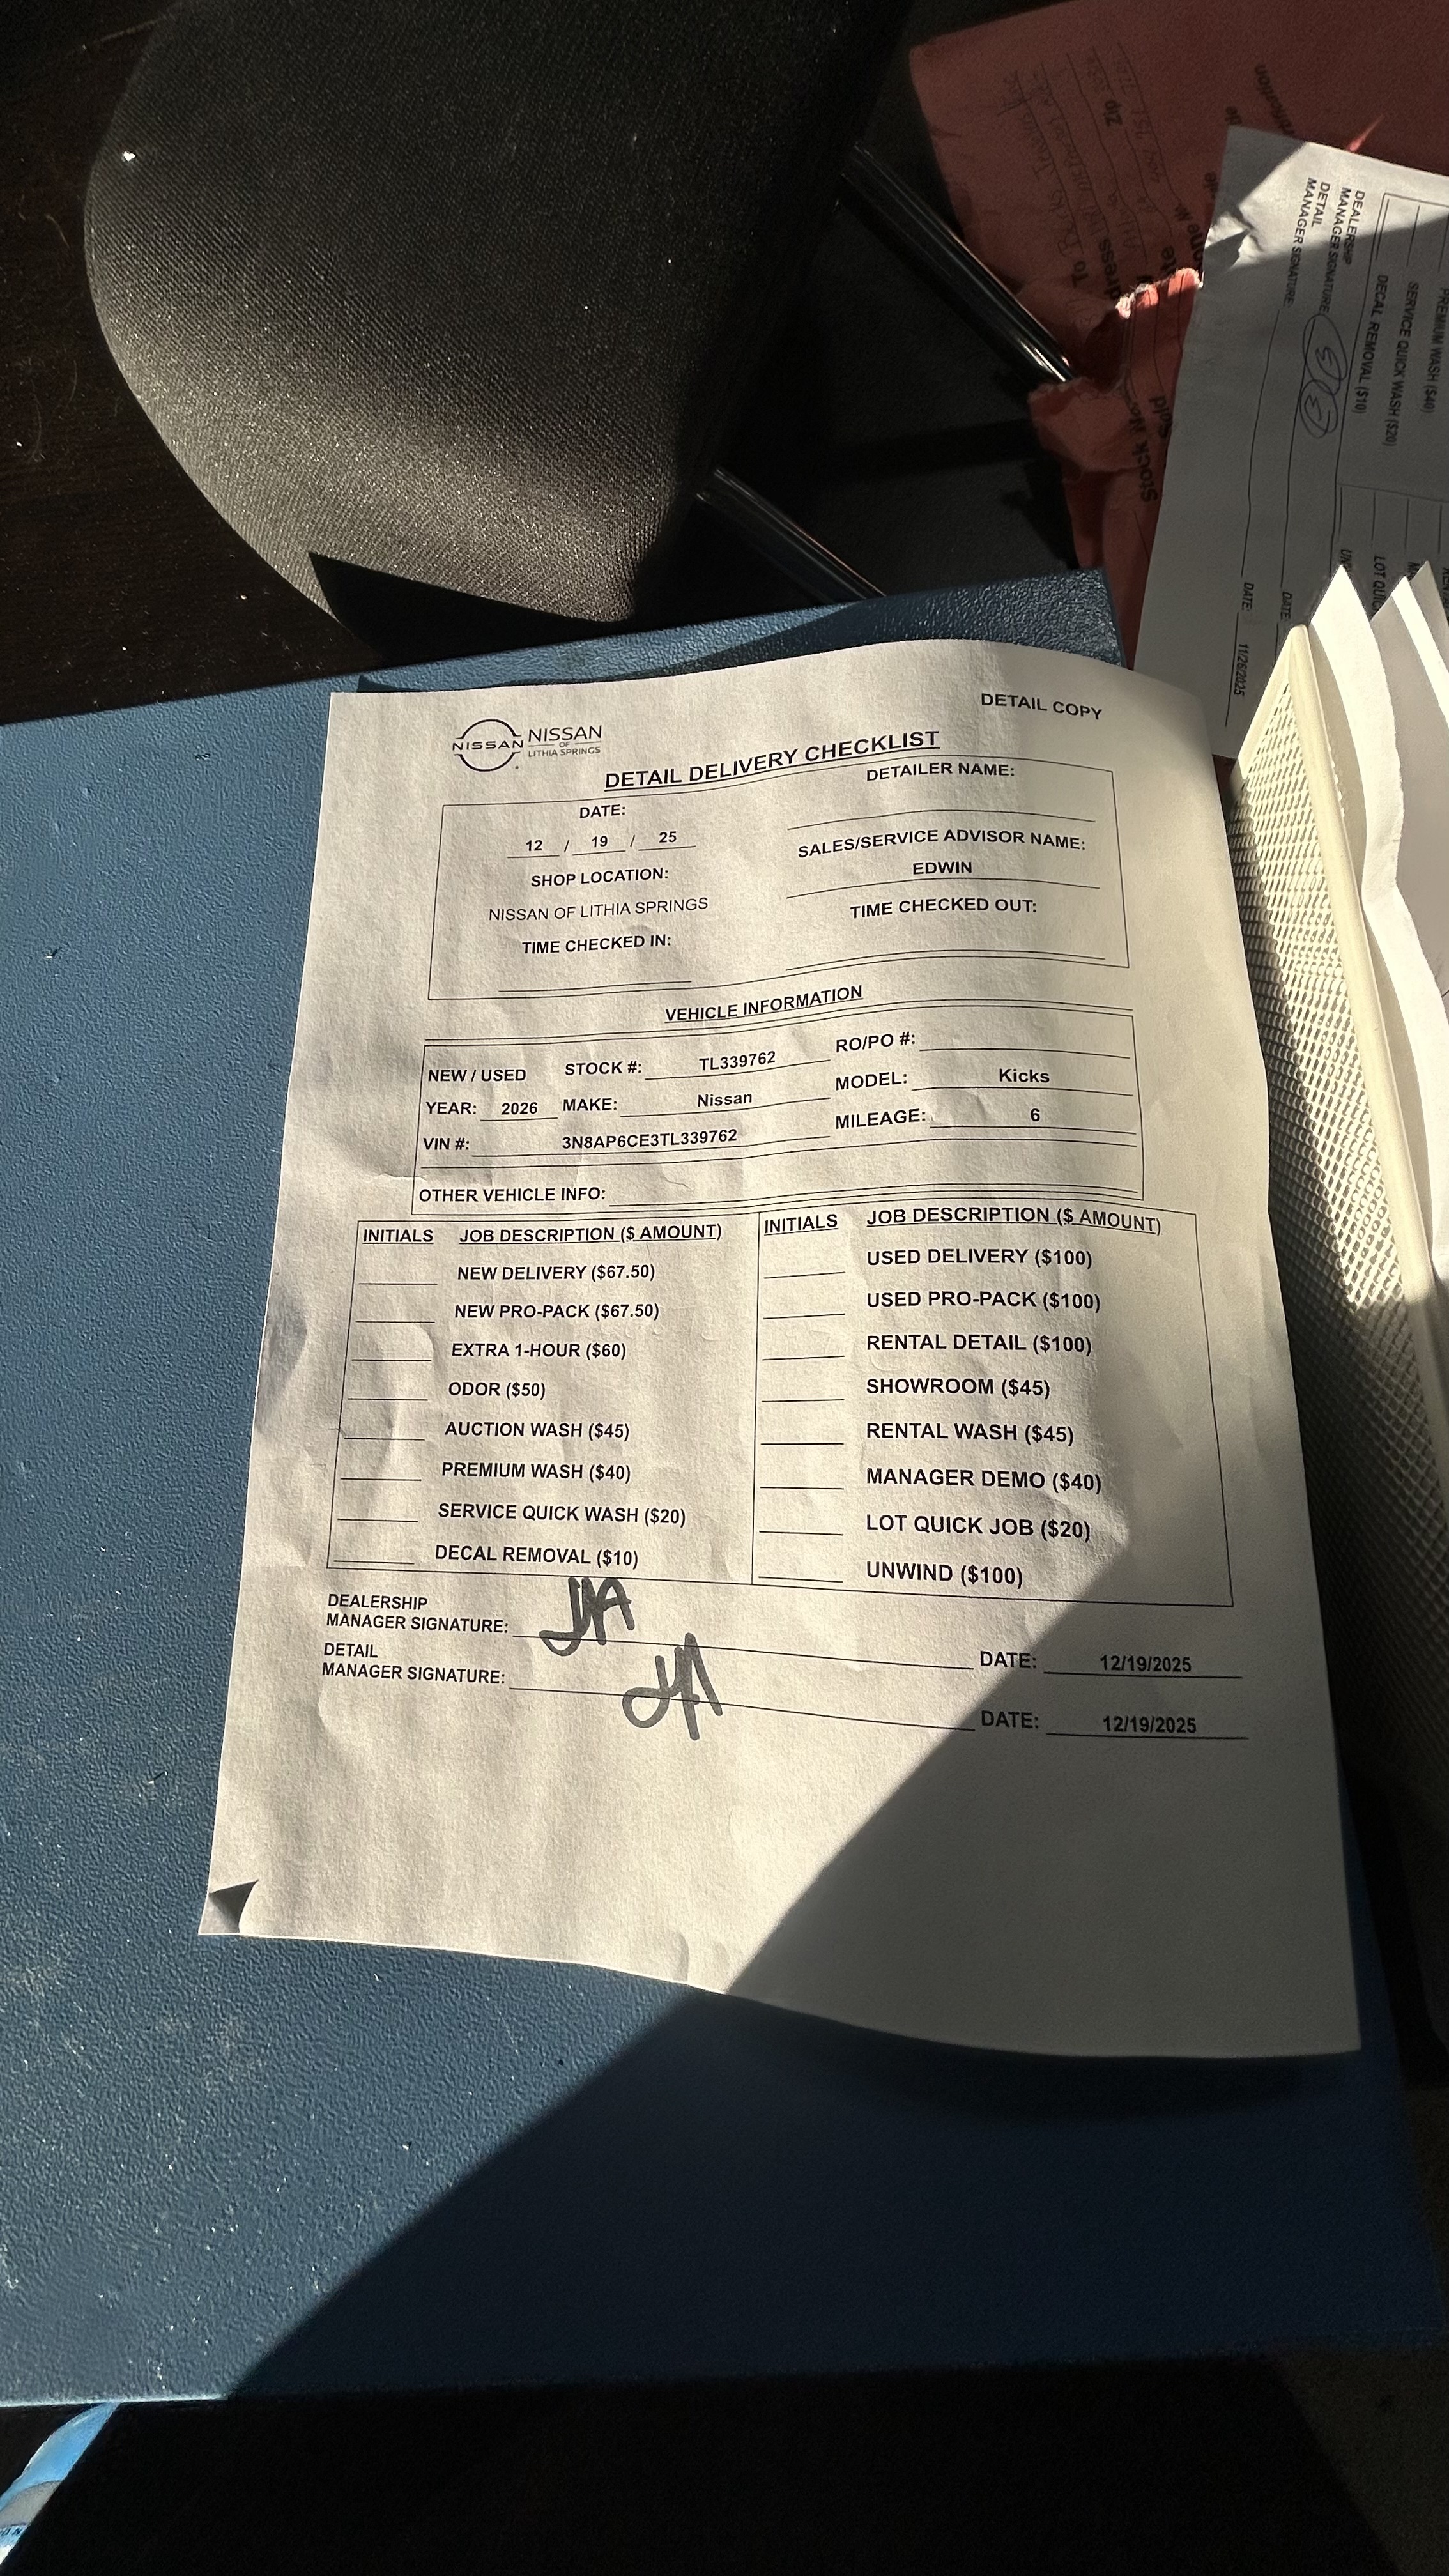 DETAIL COPY
NISSAN NISSAN
OF
LITHIA SPRINGS
DETAIL DELIVERY CHECKLIST
DATE:
12 / 19 / 25
SHOP LOCATION:
NISSAN OF LITHIA SPRINGS
TIME CHECKED IN:
DETAILER NAME:
SALES/SERVICE ADVISOR NAME:
EDWIN
TIME CHECKED OUT:
VEHICLE INFORMATION
NEW / USED STOCK #: TL339762 RO/PO #:
YEAR: 2026 MAKE: Nissan MODEL: Kicks
VIN #: 3N8AP6CE3TL339762 MILEAGE: 6
OTHER VEHICLE INFO:
INITIALS JOB DESCRIPTION ($ AMOUNT)
NEW DELIVERY ($67.50)
NEW PRO-PACK ($67.50)
EXTRA 1-HOUR ($60)
ODOR ($50)
AUCTION WASH ($45)
PREMIUM WASH ($40)
SERVICE QUICK WASH ($20)
DECAL REMOVAL ($10)
INITIALS JOB DESCRIPTION ($ AMOUNT)
USED DELIVERY ($100)
USED PRO-PACK ($100)
RENTAL DETAIL ($100)
SHOWROOM ($45)
RENTAL WASH ($45)
MANAGER DEMO ($40)
LOT QUICK JOB ($20)
UNWIND ($100)
DEALERSHIP
MANAGER SIGNATURE: DATE: 12/19/2025
DETAIL
MANAGER SIGNATURE: DATE: 12/19/2025
PREMIUM WASH ($40)
SERVICE QUICK WASH ($20)
LOT QUICK
DECAL REMOVAL ($10)
DEALERSHIP
MANAGER SIGNATURE: DATE:
DETAIL
MANAGER SIGNATURE: DATE: 11/26/2025
Stock No
Sold
To
Zip